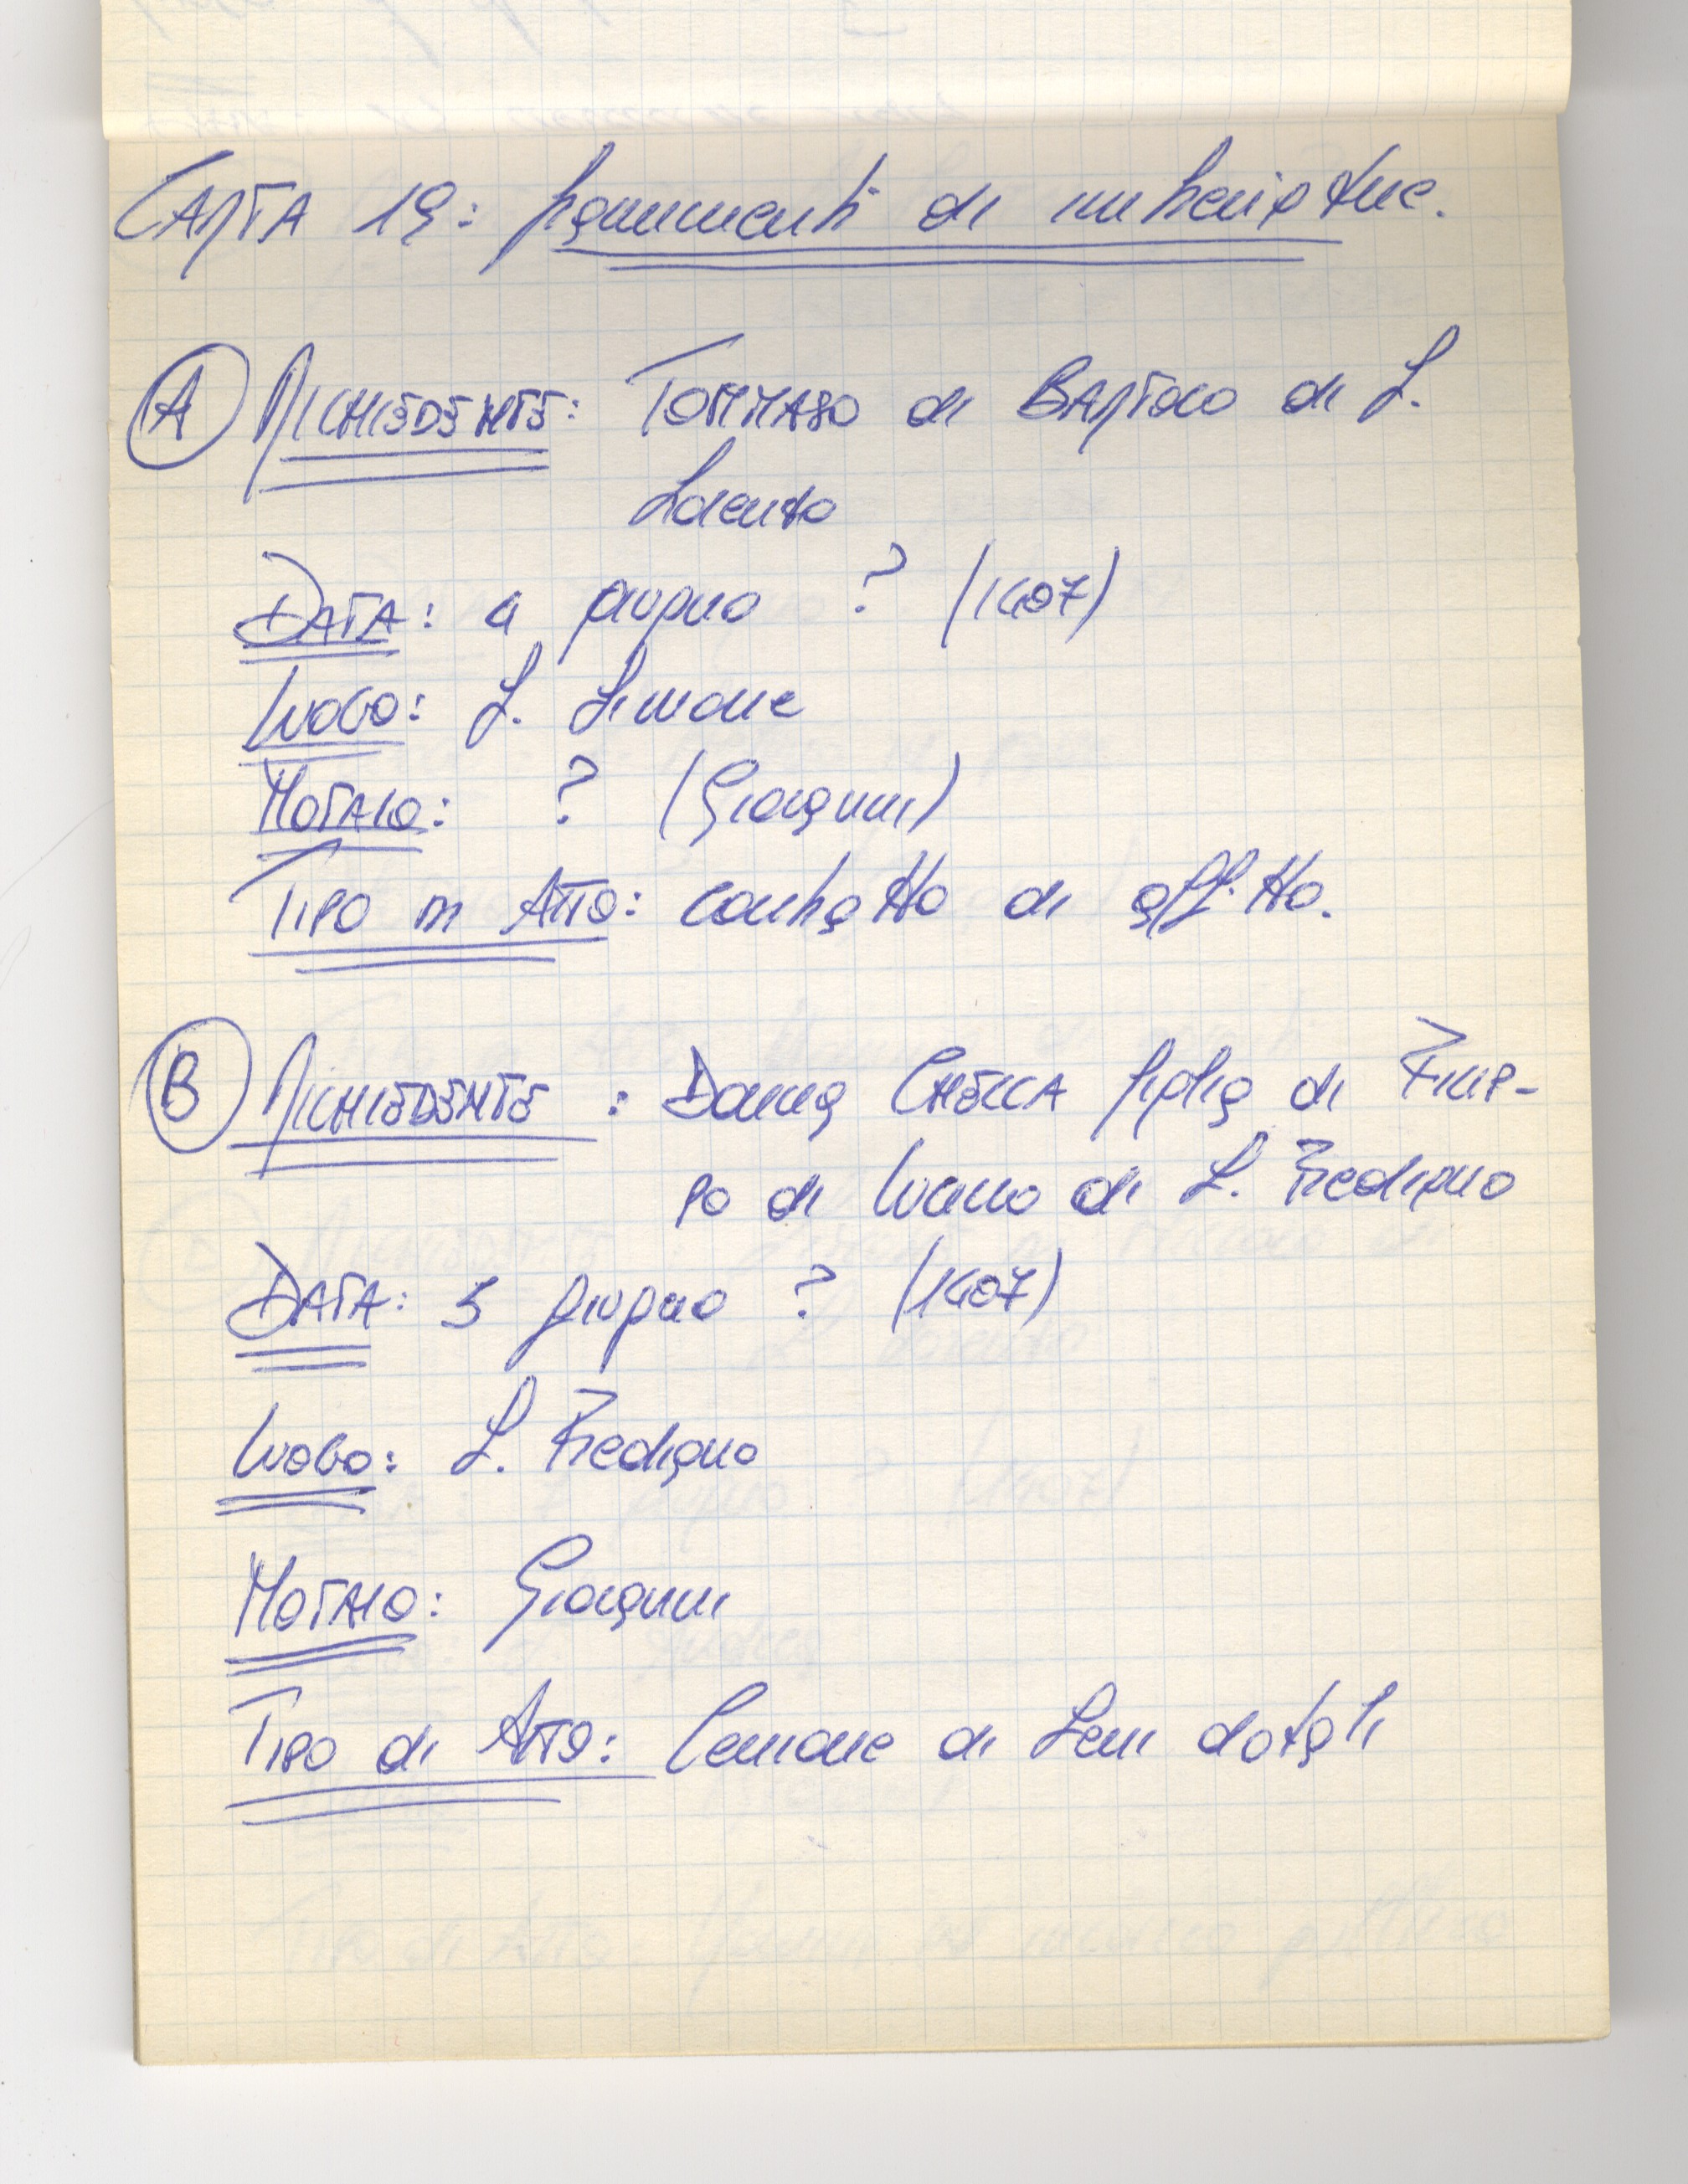 CARTA 19: frammenti di imbreviature.
A RICHIEDENTE: TOMMASO di BARTOLO di S.
Lorenzo
DATA: 4 giugno ? (1407)
LUOGO: S. Simone
NOTAIO: ? (Giovanni)
TIPO DI ATTO: contratto di affitto.
B RICHIEDENTE : Donna CHECCA figlia di FILIP-
PO di Luano di S. Frediano
DATA: 5 giugno ? (1407)
LUOGO: S. Frediano
NOTAIO: Giovanni
TIPO di ATTO: Cessione di beni dotali